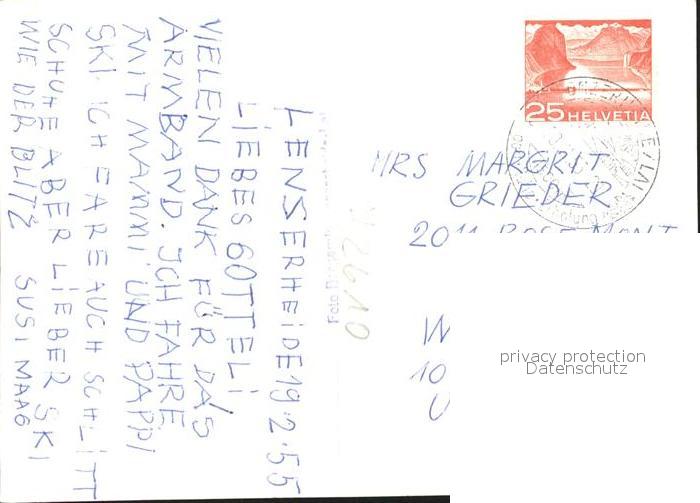 LENSERHEIDE 19.2.55
LIEBES GÖTTELI
VIELEN DANK FÜR DAS
ARMBAND. ICH FAHRE
MIT MAMMI UND PAPPI
SKI. ICH FARE AUCH SCHLITT
SCHUHE ABER LIEBER SKI
WIE DER BLITZ SUSI MAAG
25 HELVETIA
MRS MARGRIT
GRIEDER
2011 ROSEMONT
10
Foto
42610
privacy protection
Datenschutz